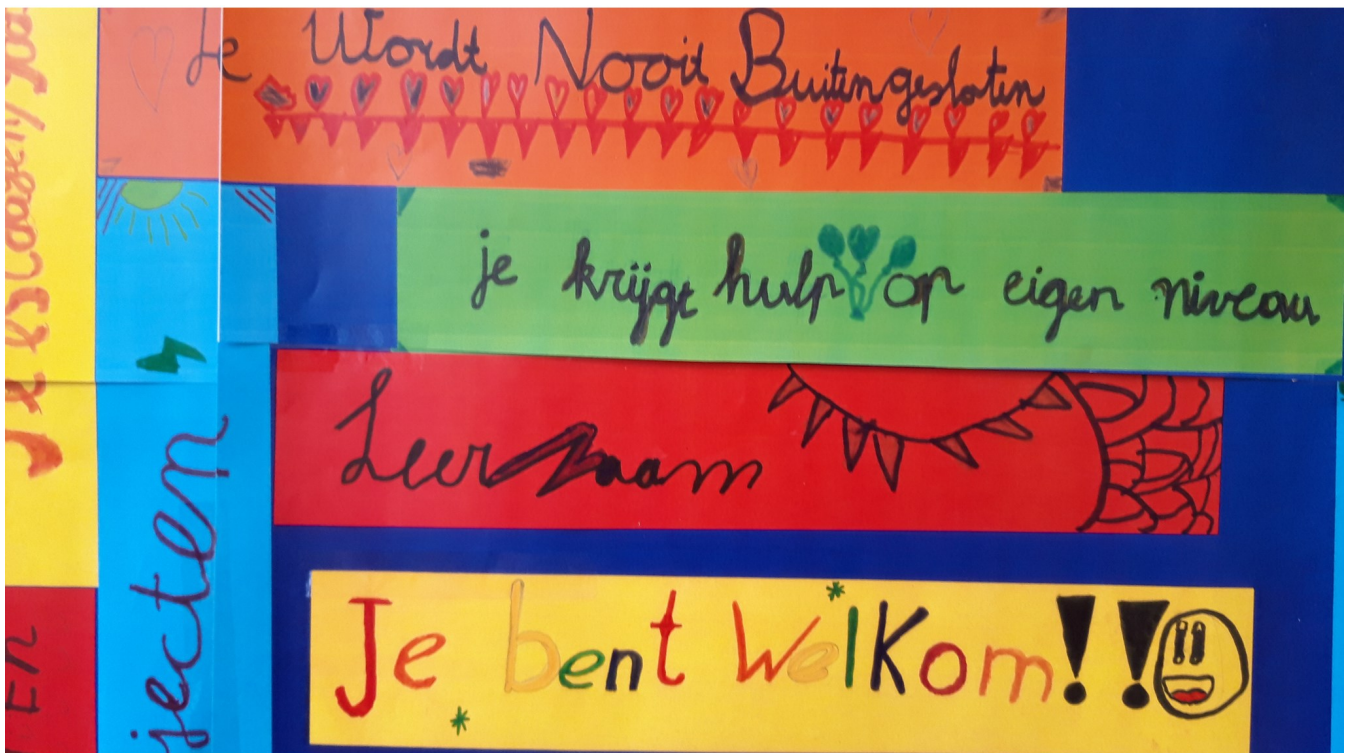 Je Wordt Nooit Buitengesloten
je krijgt hulp op eigen niveau
Leerzaam
Je bent Welkom!!
jecten
En